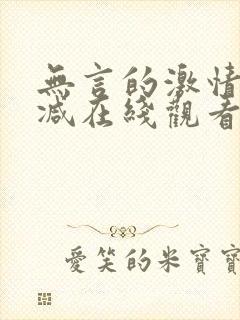 無言的激情
減在綫觀看
愛笑的米寶寶